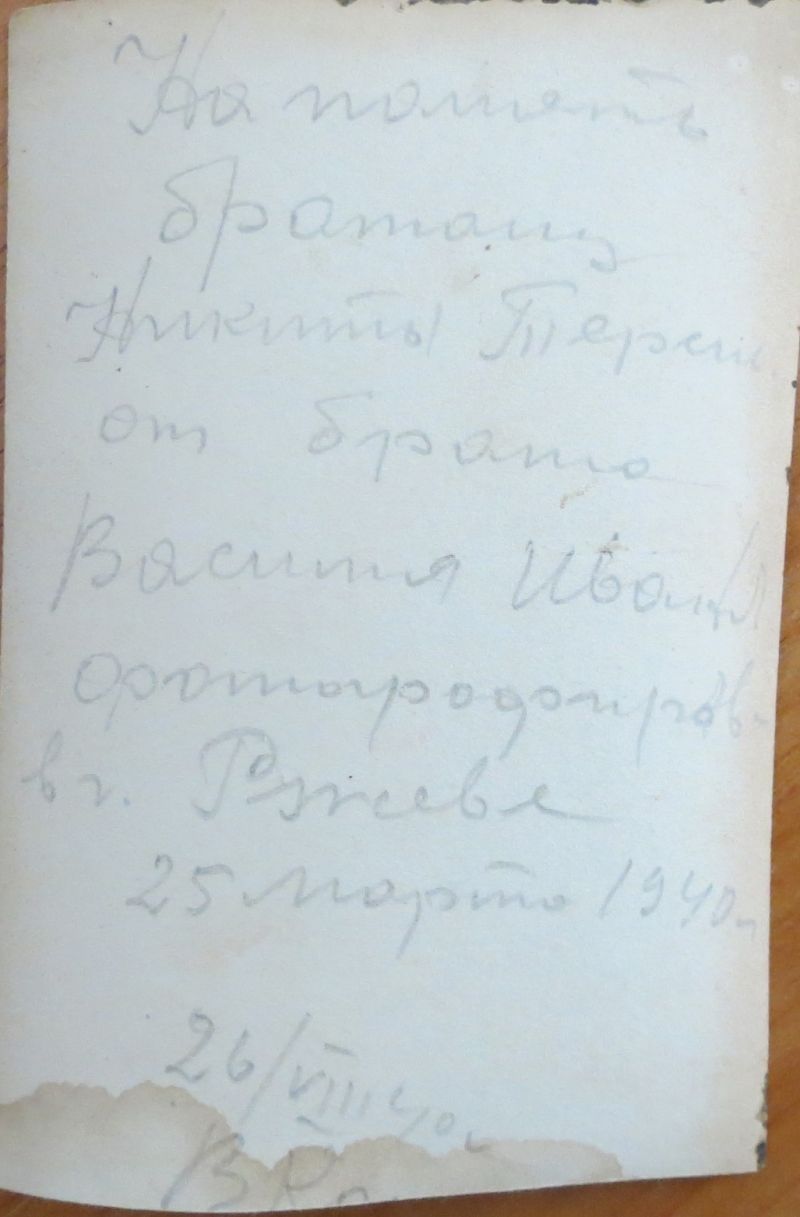 На память
братану
Никиты Терен
от брата
Василия Иван
фотографиров-
в г. Ржеве
25 марта 1940г
26/VIII 40г